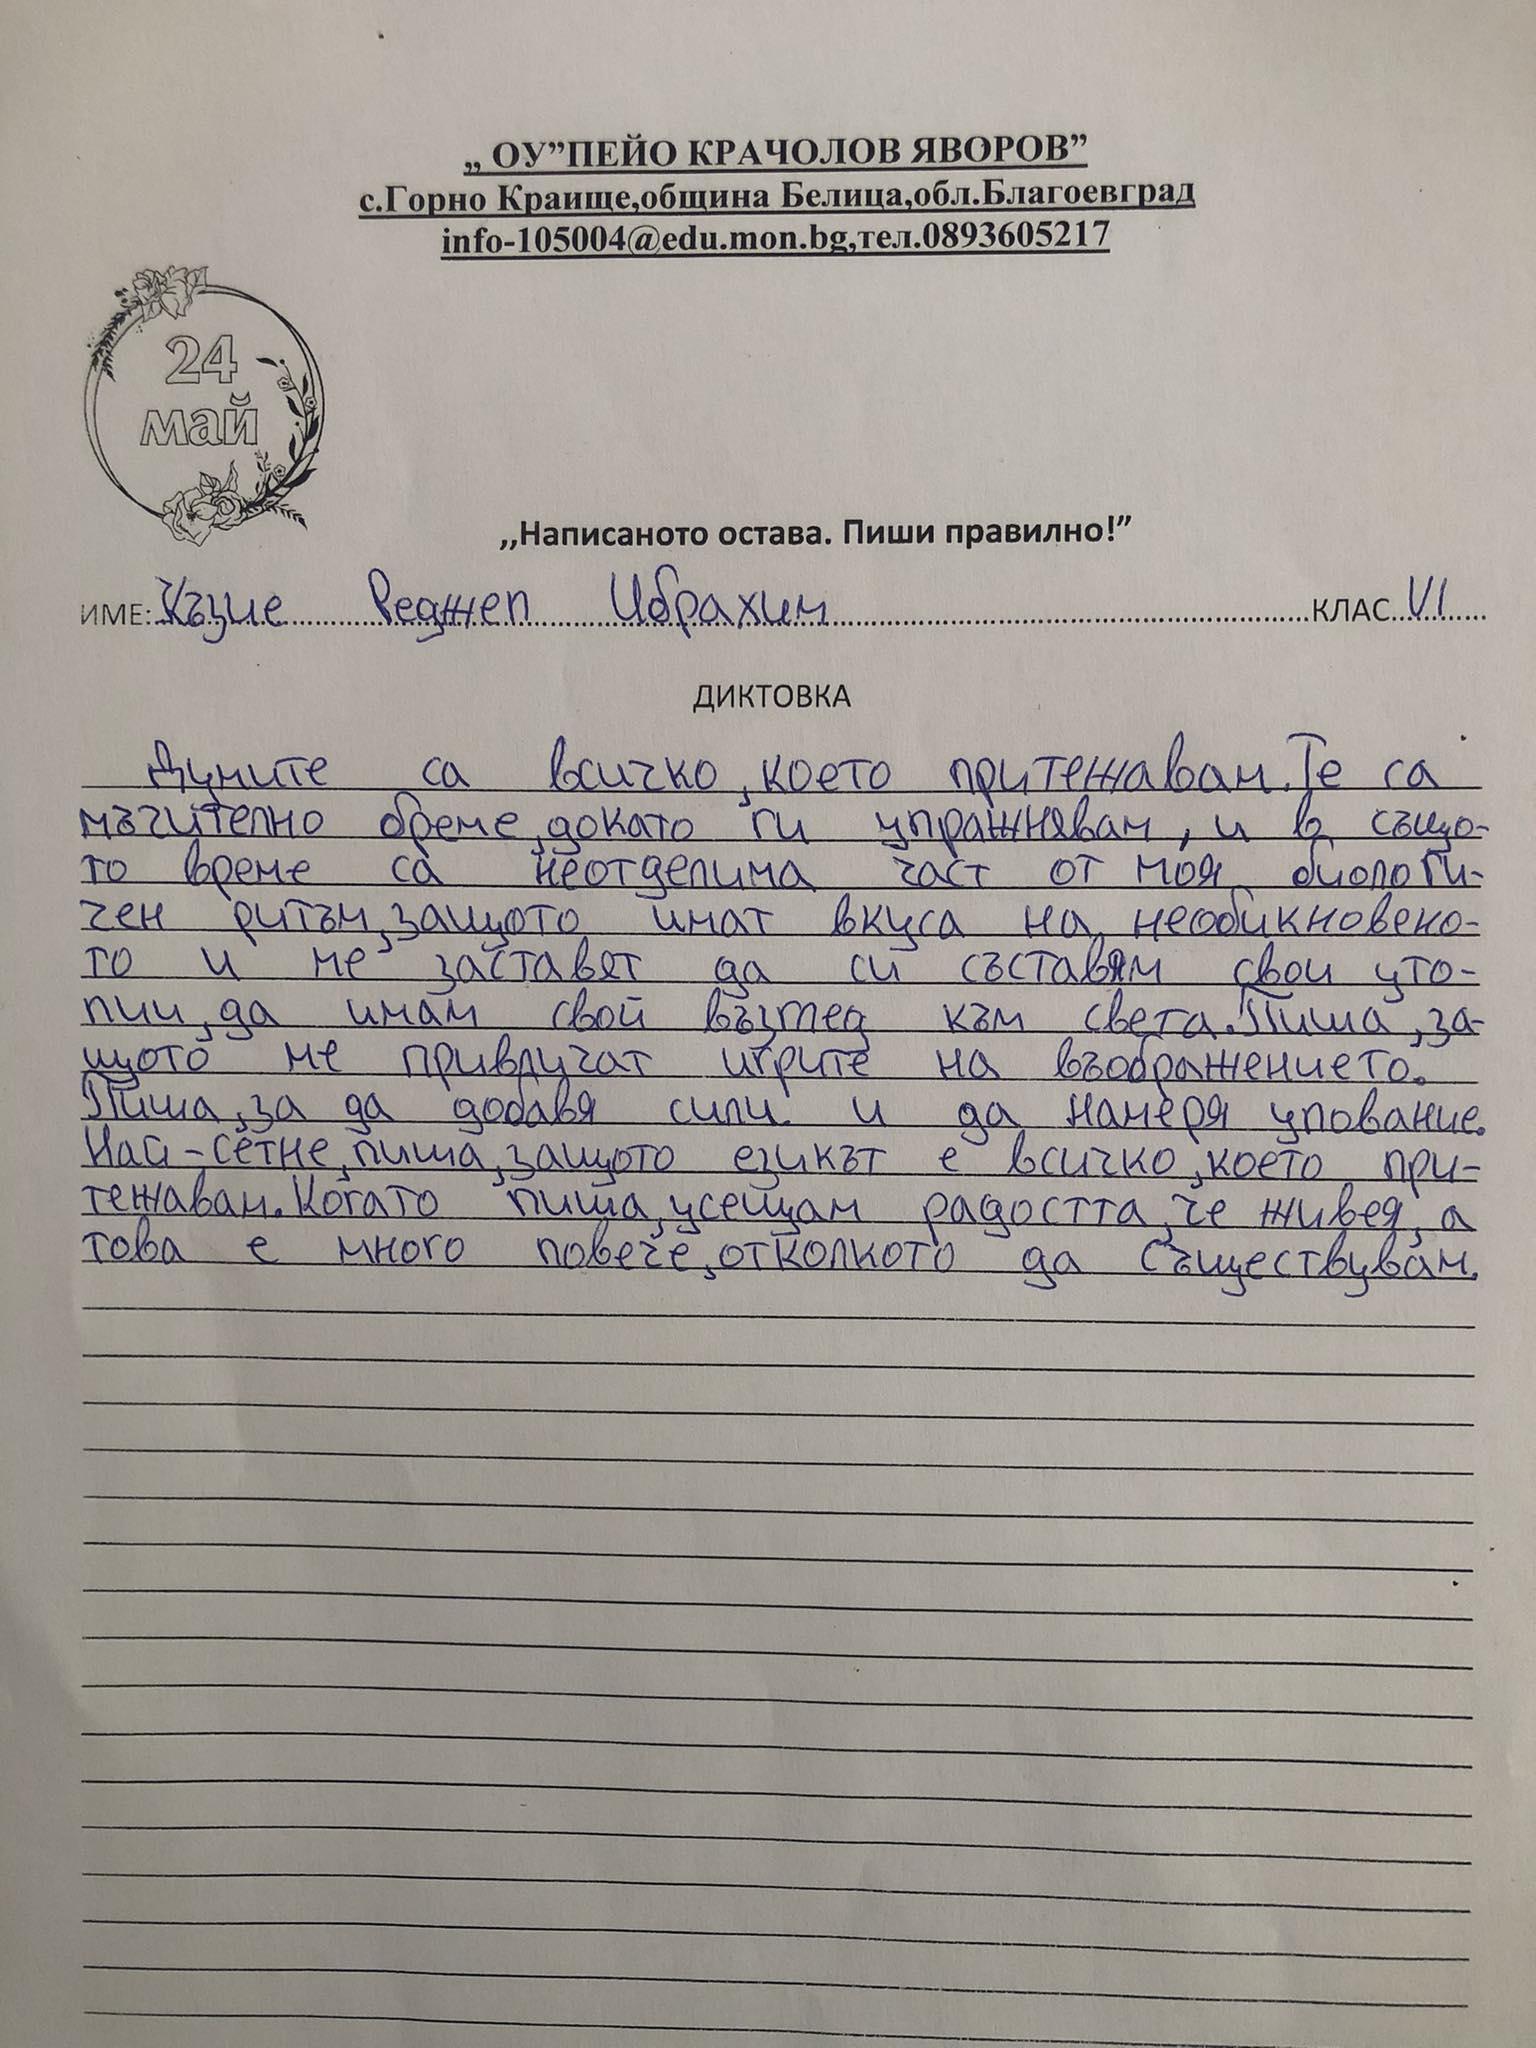 „ ОУ”ПЕЙО КРАЧОЛОВ ЯВОРОВ”
с.Горно Краище,община Белица,обл.Благоевград
info-105004@edu.mon.bg,тел.0893605217
24
май
,,Написаното остава. Пиши правилно!”
ИМЕ: Къзие Реджеп Ибрахим КЛАС VI
ДИКТОВКА
Думите са всичко, което притежавам. Те са
мъчително бреме, докато ги упражнявам, и в също-
то време са неотделима част от моя биологи-
чен ритъм, защото имат вкуса на необикновено-
то и ме заставят да си съставям свои уто-
пии, да имам свой възглед към света. Пиша, за-
щото ме привличат игрите на въображението.
Пиша, за да добавя сили и да намеря упование.
Най-сетне, пиша, защото езикът е всичко, което при-
тежавам. Когато пиша, усещам радостта, че живея, а
това е много повече, отколкото да съществувам.